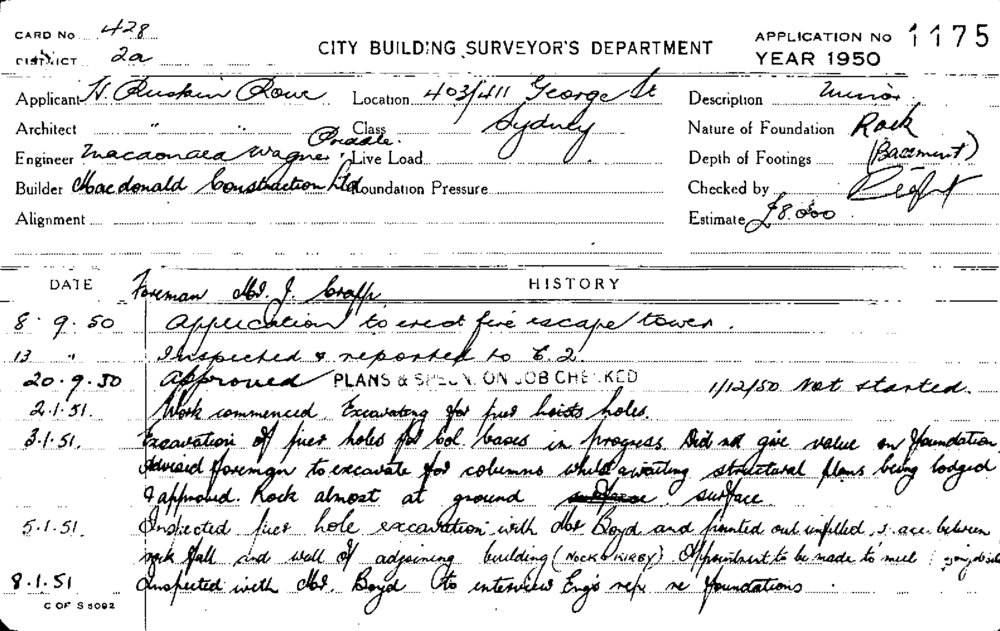 CARD No 428
DISTRICT 2a
CITY BUILDING SURVEYOR'S DEPARTMENT
APPLICATION No 1175
YEAR 1950
Applicant H. Ruskin Rowe Location 403/411 George St Description Minor
Architect " " Class Sydney Nature of Foundation Rock
Engineer Macdonald Wagner Priddle. Live Load Depth of Footings (Basement)
Builder Macdonald Construction Ltd Foundation Pressure Checked by
Alignment Estimate £8,000
DATE HISTORY
Foreman Mr. J.
8. 9. 50 Application to erect fire escape tower.
13 " Inspected & reported to C.2.
20.9.50 Approved PLANS & SPECN. ON JOB CHECKED 1/12/50 Not started.
2.1.51. Work commenced. Excavating for pier holes.
3.1.51. Excavation of pier holes for Col. bases in progress. Did not give value on foundation
Advised foreman to excavate for columns whilst awaiting structural plans being lodged
& approved. Rock almost at ground surface surface
5.1.51. Inspected pier hole excavation with Mr Boyd and pointed out unfilled space between
rock fall and wall of adjoining building (NOCK & KIRBY) Appointment to be made to meet on job site
8.1.51 Inspected with Mr. Boyd to interview Eng's rep re foundations
C OF S 5092